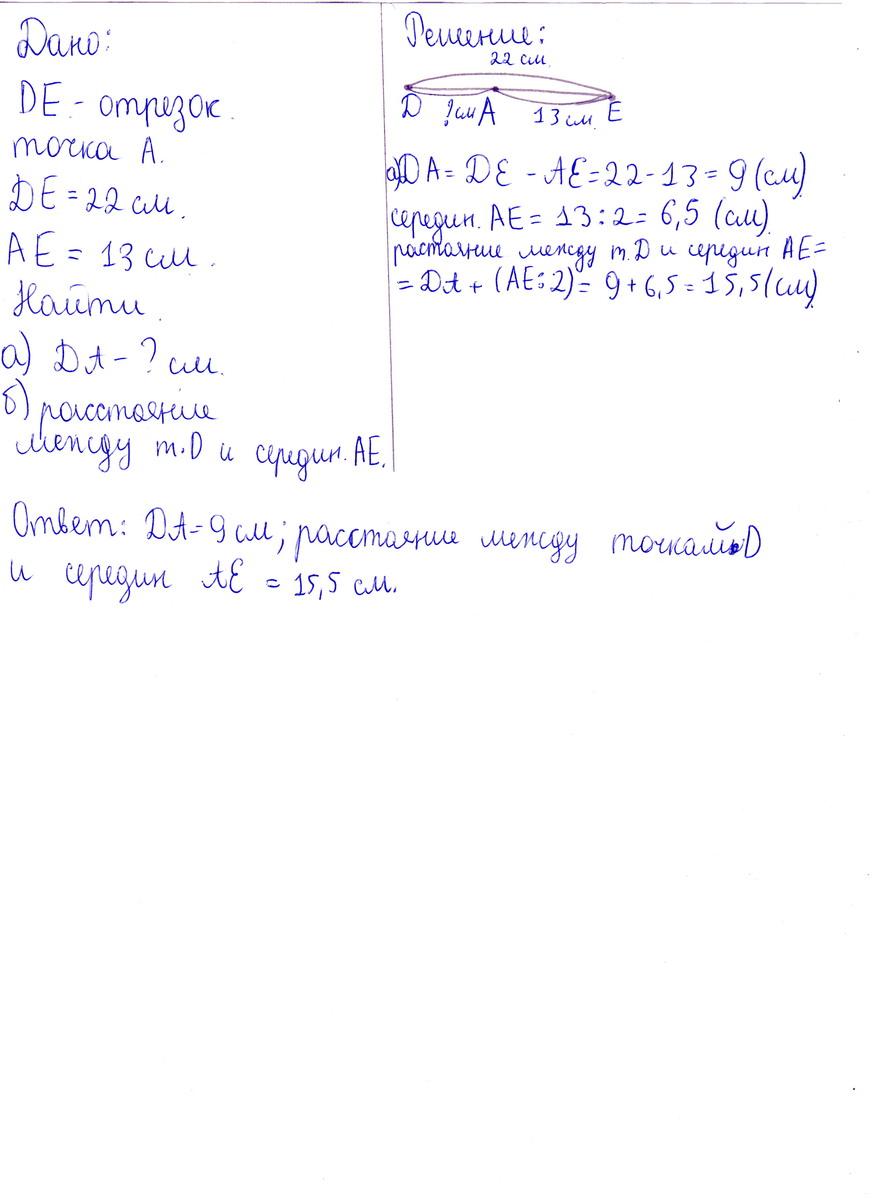 Дано:
DE - отрезок.
точка A.
DE = 22 см.
AE = 13 см.
Найти.
а) DA - ? см.
б) расстояние
между т.D и середин. AE.
Решение:
22 см.
D ? см A 13 см. E
а) DA = DE - AE = 22 - 13 = 9 (см)
середин. AE = 13 : 2 = 6,5 (см)
растояние между т.D и середин AE =
= DA + (AE : 2) = 9 + 6,5 = 15,5 (см)
Ответ: DA = 9 см; расстояние между точкай D
и середин AE = 15,5 см.